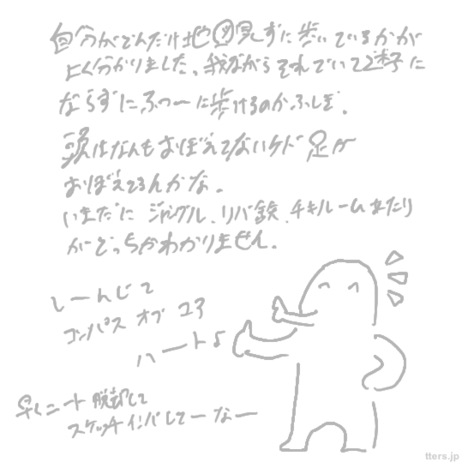 自分がどんだけ地図見ずに歩いているかが
よく分かりました。我ながらそれでいて迷子に
ならずにふつーに歩けるのかふしぎ。
頭はなんもおぼえてないケド足が
おぼえてるんかな。
いまだにジャングル、リバ鉄、チキルームあたり
がどっちかわかりません。
しーんじて
コンパス オブ ユア
ハート♪
早くニート脱却して
スケッチインパしてーなー
tters.jp